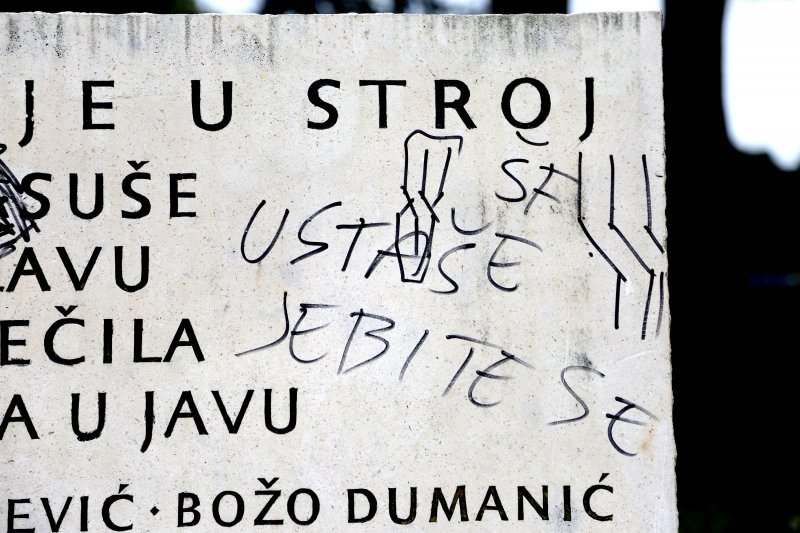 JE U STROJ
SUŠE
AVU
EČILA
A U JAVU
EVIĆ · BOŽO DUMANIĆ
ŠA
USTAŠE
JEBITE SE